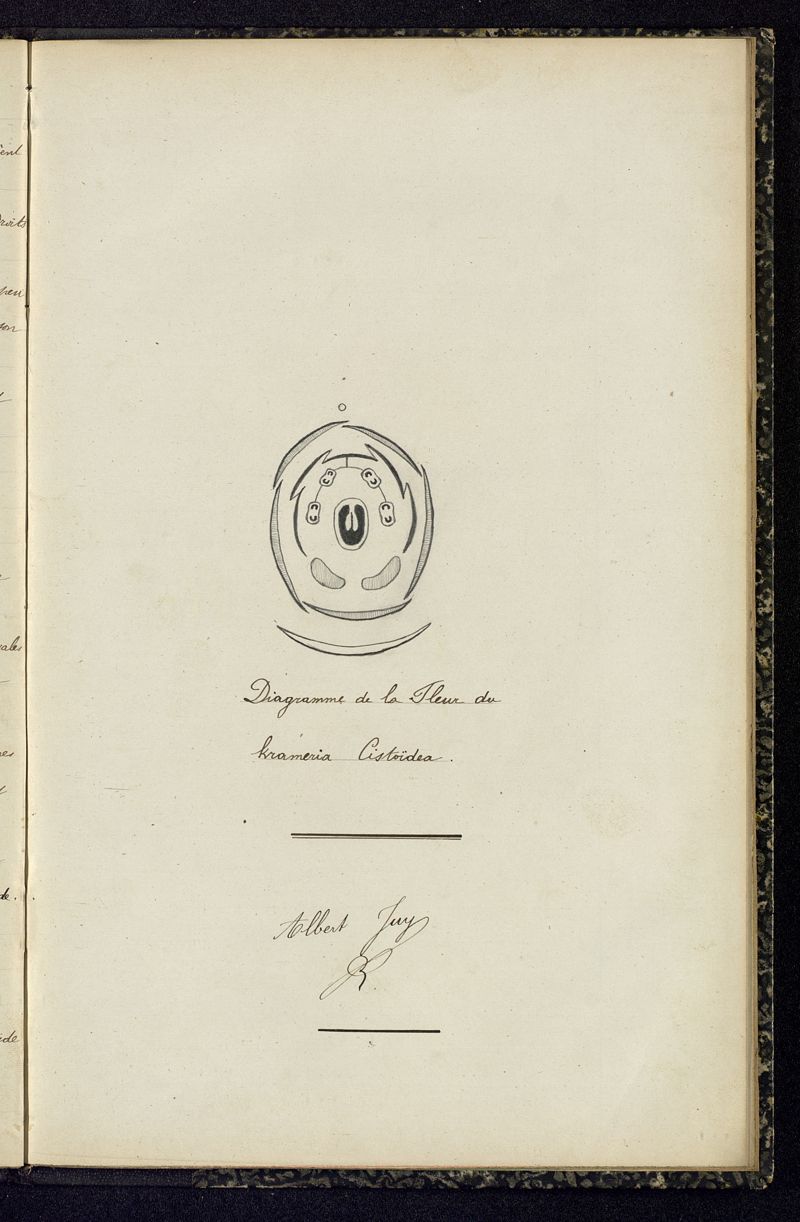 Diagramme de la Fleur du
Krameria Cistoïdea.
Albert Juy